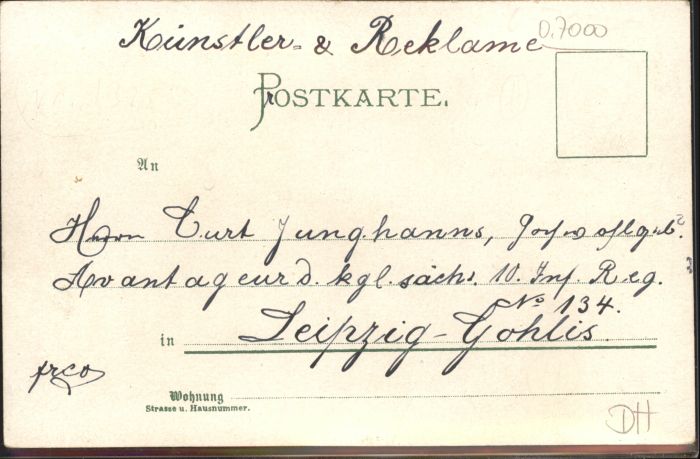 Künstler- & Reklame
0.7000
POSTKARTE.
An
Herrn Curt Junghanns, Hochwohlgeb.
Avantageur d. kgl. sächs. 10. Inf. Reg.
No 134.
in Leipzig-Gohlis.
frco
Wohnung
Strasse u. Hausnummer.
DH